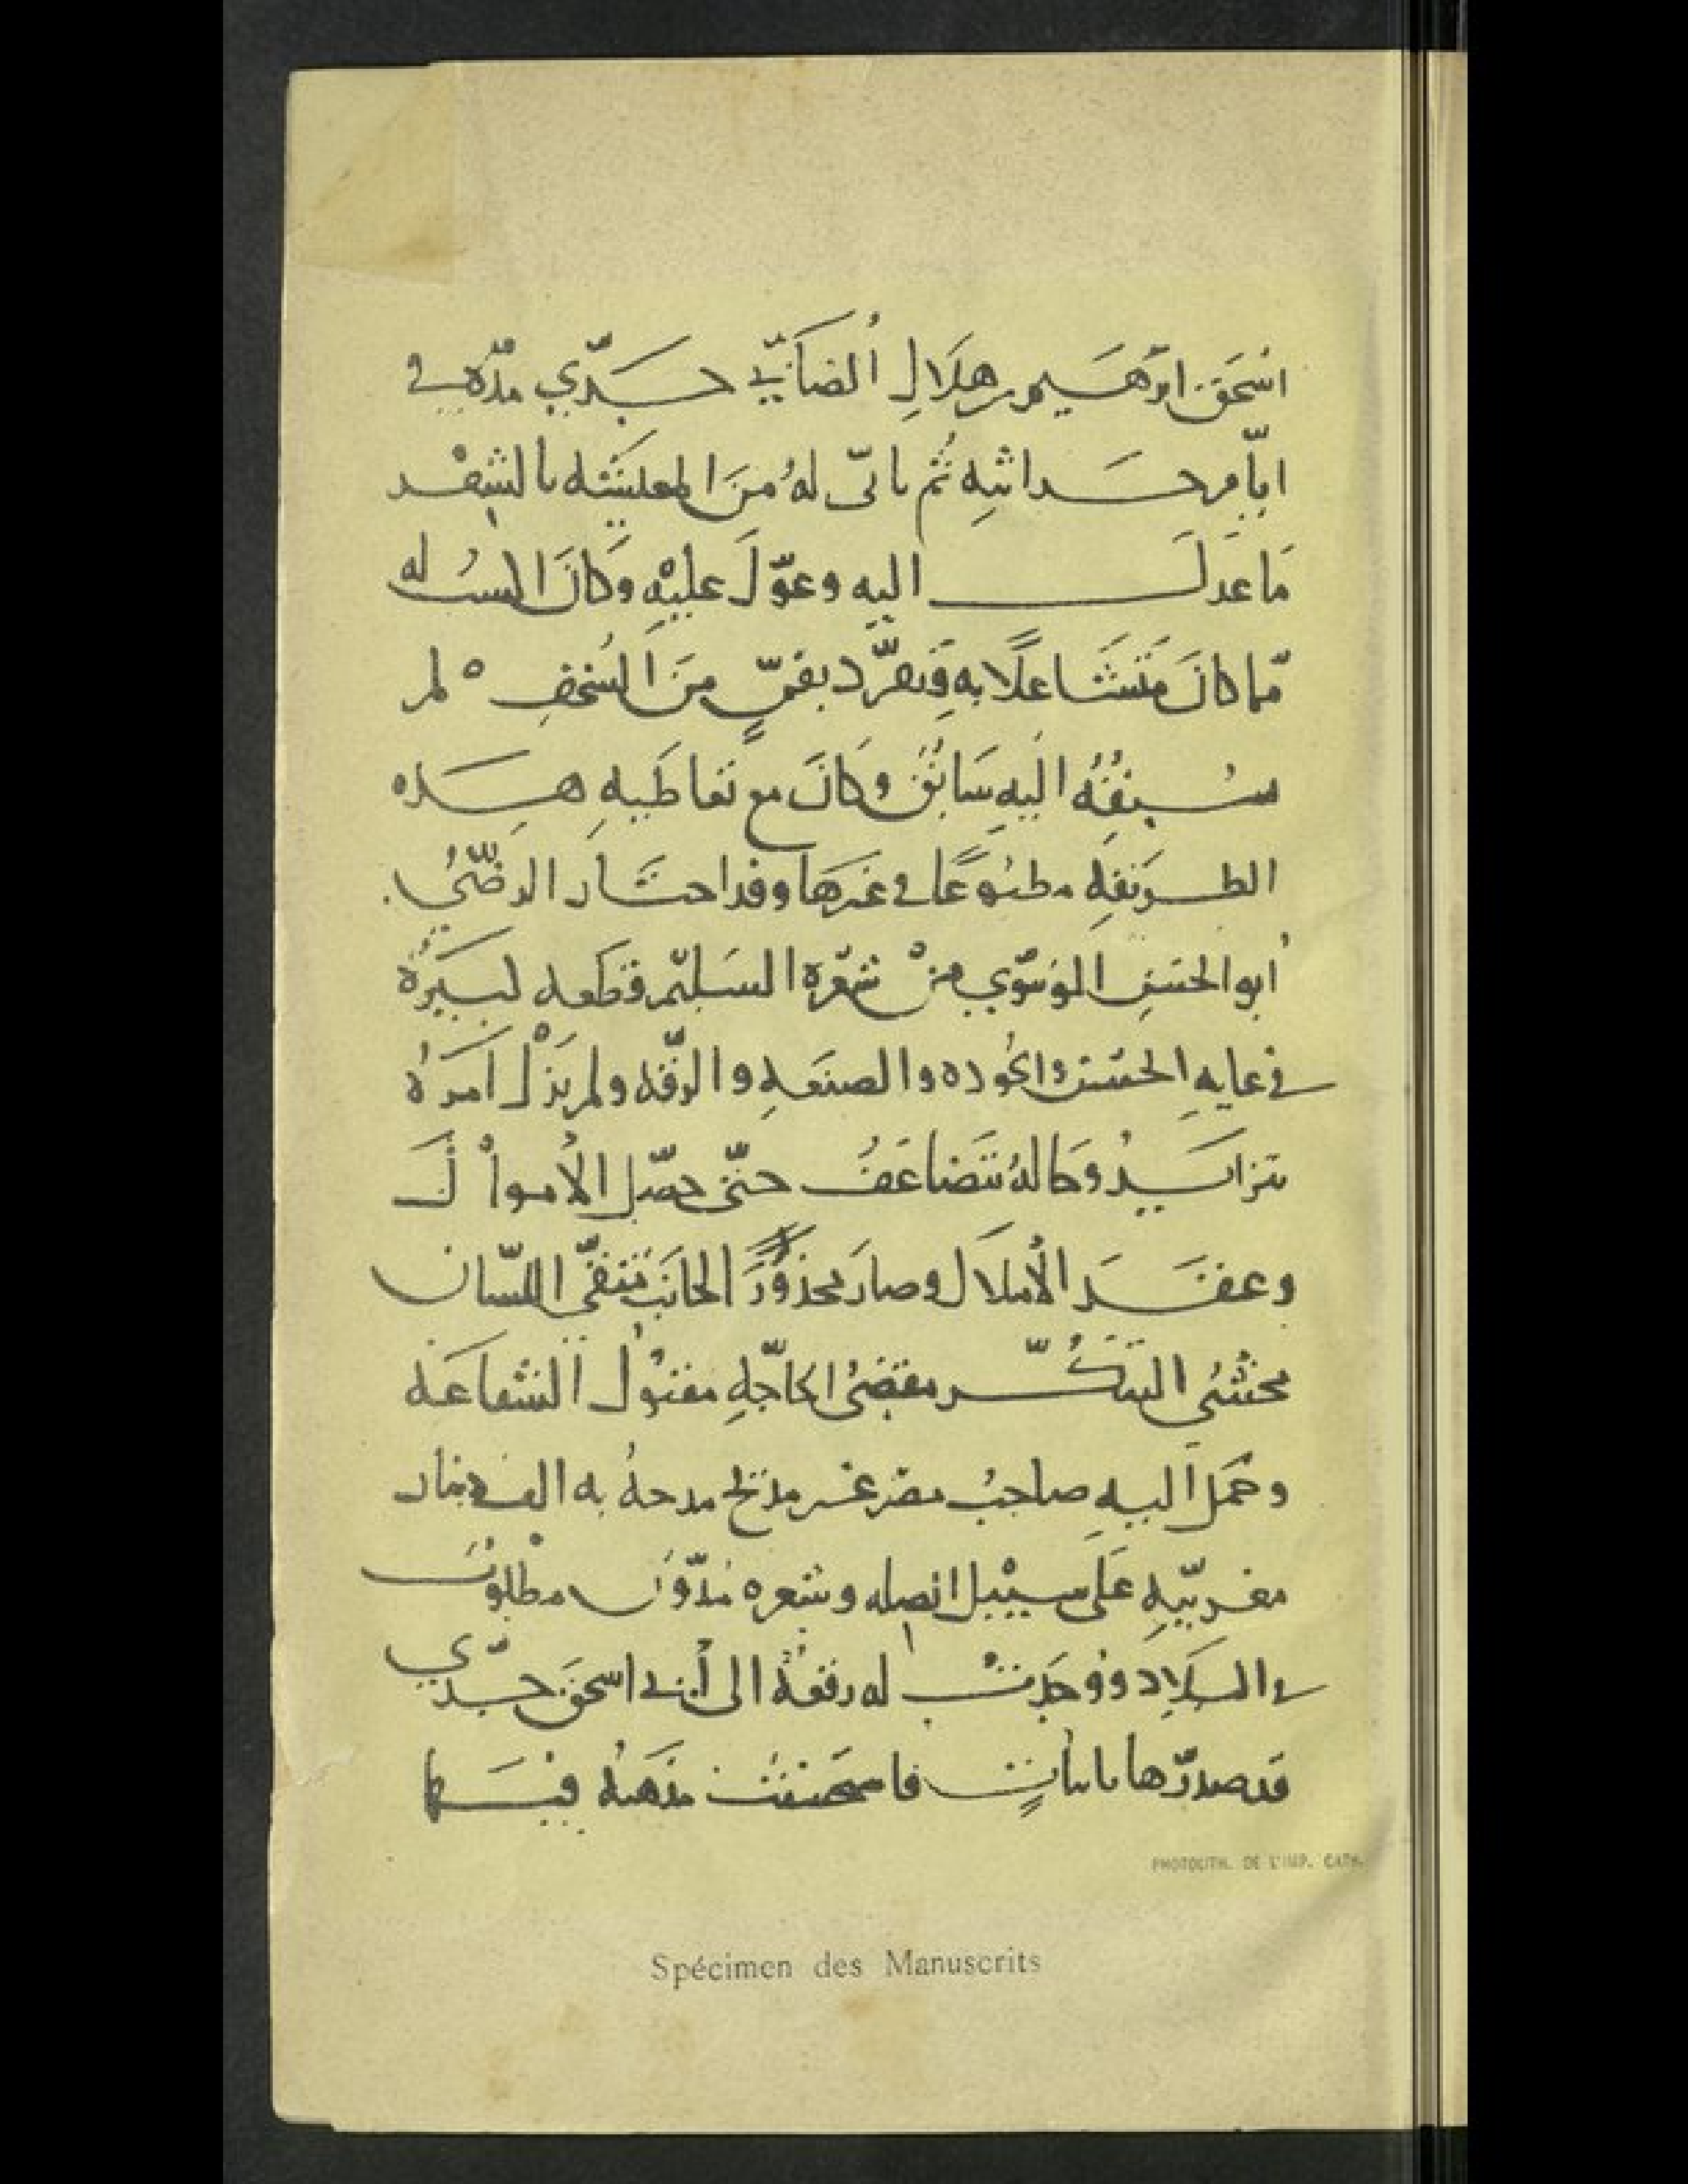 اسحق ابرهيم بن هلال الصابي جدي مدة في
ايام حداثته ثم تأتى له من المعيشة بالشعر
ما عدل اليه وعول عليه وكان اليسر له
مما كان متشاغلا به وتفرد بفن من السخف ه لم
يسبقه اليه سابق وكان مع تعاطيه هذه
الطريقة مطبوعا في غيرها وقد اختار الرضي
ابو الحسن الموسوي من شعره السليم قطعة كبيرة
في غاية الحسن والجودة والصنعة والرقة ولم يزل امره
يتزايد وحاله تتضاعف حتى حصل الأموال
وعقد الأملاك وصار محذور الجانب متقى اللسان
مخشي التنكر مقضي الحاجة مقبول الشفاعة
وحمل اليه صاحب مصر عن مديح مدحه به الف دينار
مغربية على سبيل الصله وشعره مدون مطلوب
في البلاد ووجدت له رقعة الى أبي اسحق جدي
قد صدرها بابيات فاستحسنت مذهبه فيها
PHOTOLITH. DE L'IMP. CATH.
Spécimen des Manuscrits